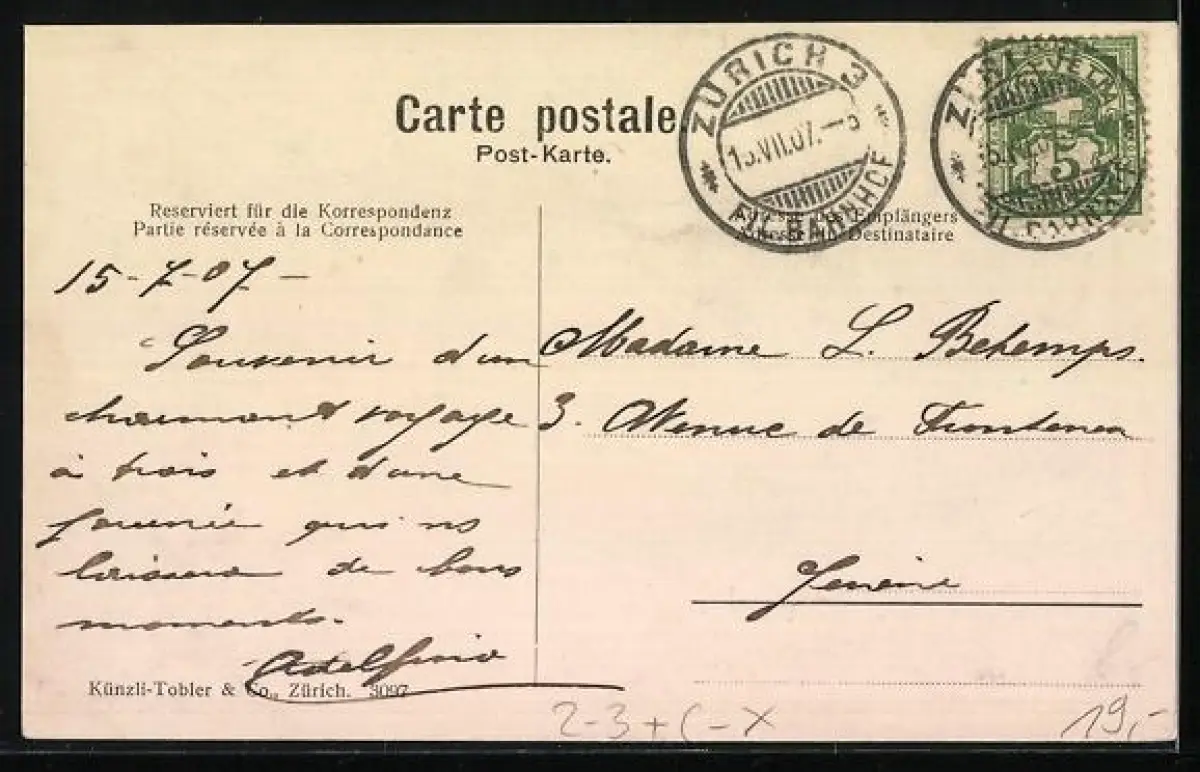 Carte postale
Post-Karte.
ZÜRICH 3
15.VII.07.
BAHNHOF
HELVETIA
5
Reserviert für die Korrespondenz
Partie réservée à la Correspondance
Adresse des Empfängers
Adresse du Destinataire
15-7-07-
Souvenir d'un
charmant voyage
à trois et d'une
journée qui ns
laissera de bons
moments.
Madame L. Betemps.
3. Avenue de Frontenex
Genève
Künzli-Tobler & Co., Zürich. 3097
2-3+(-X
19,-